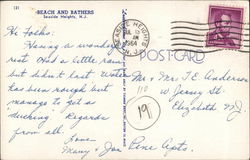 121
BEACH AND BATHERS
Seaside Heights, N.J.
SEASIDE HEIGHTS
JUL 13
1964
N.J.
POST CARD
Hi Folks:
Having a wonderful
rest. Had a little rain
but didn't last. Water
has been rough but
manage to get a
ducking. Regards
from all.
Love
Mary & Joe
Mr & Mrs T.E. Anderson
110 W. Jersey St.
Elizabeth N.J.
19
Pine Apts.